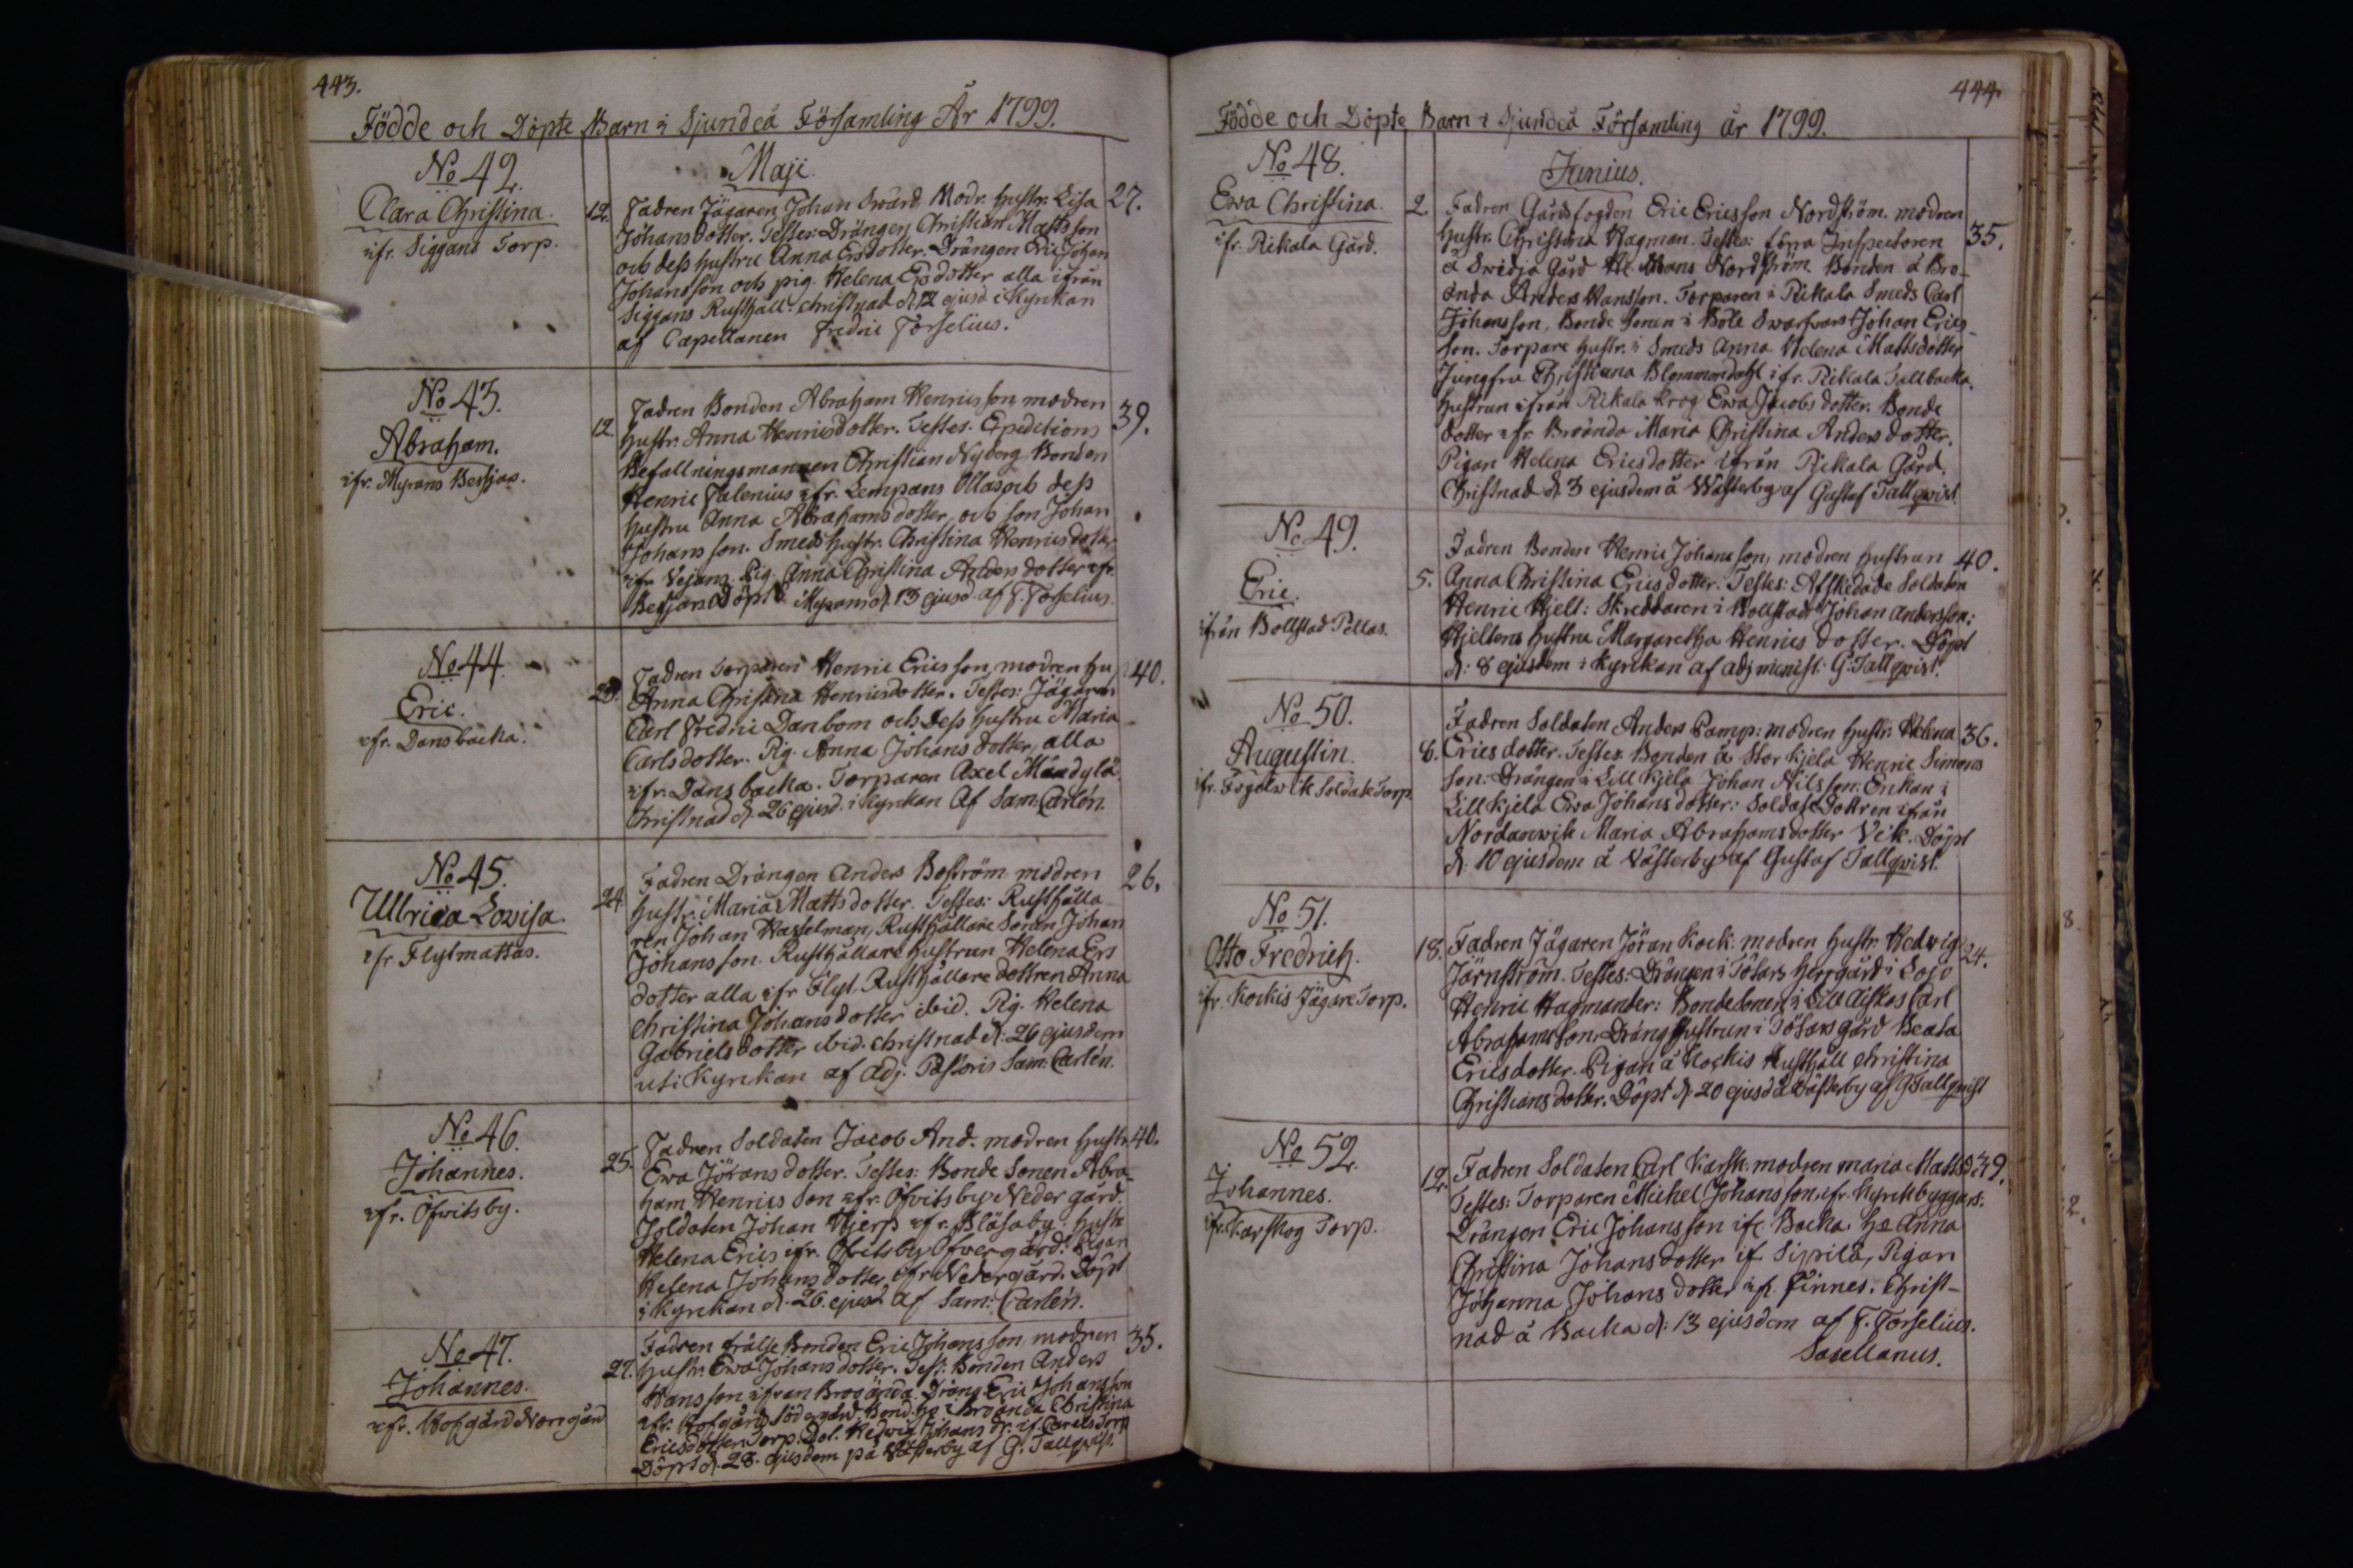 443.
Födde och Döpte Barn i Sjundeå Församling År 1799.
No 42.
Clara Christina.
ifr. Siggans Torp.
Maji
12. Fadren Jägaren Johan Swärd. Modr. Hustr. Lisa 27.
Johansdotter. Testes: Drängen Christian Mattsson
och dess hustru Anna Ersdotter. Drängen Eric Johan
Johansson och pig. Helena Ersdotter alla ifrån
Siggans Rusthåll. Christnad d. 12 ejusd i Kyrkan
af Capellanen Fredric Forselius.
No 43.
Abraham.
ifr. Myrans
12 Fadren Bonden Abraham Henricsson, modren 39.
Hustr. Anna Henricsdotter. Testes. Expeditions
Befallningsmannen Christian Nyberg Bonden
Henric Falenius ifr. Lempans Ollas och dess
Hustru Anna Abrahamsdotter, och son Johan
Johansson. Smeds hustr. Christina Henricsdotter
ifr. Vejans. Pig. Anna Christina Andersdotter ifr.
Döpt i Myrans d. 13 ejusd. af F. Forselius.
No 44.
Eric.
ifr. Dansbacka.
Fadren Torparen Henric Ericsson, modren hu. 40.
Anna Christina Henricsdotter. Testes: Jägaren
Carl Fredric Danbom och dess hustru Maria
Carlsdotter. Pig. Anna Johansdotter, alla
ifr. Dansbacka. Torparen Axel
Christnad d. 26 ejusd. i Kyrkan af Sam: Carlén.
No 45.
Ullrica Lovisa.
ifr Flytmattas.
24. Fadren Drängen Anders Boström modren 26.
Hustr. Maria Mattsdotter. Testes: Rusthålla-
ren Johan Hasselman, Rusthållare Sonen Johan
Johansson. Rusthållare hustrun Helena Ers
dotter alla ifr Flyt. Rusthållare dottren Anna
Christina Johansdotter ibid. Pig. Helena
Gabrielsdotter ibid. Christnad d: 26 ejusdem
uti Kyrkan af Adj. Pastoris Sam: Carlén.
No 46.
Johannes.
ifr. Öfvitsby.
25. Fadren Soldaten Jacob And. modren Hustr. 40.
Ewa Jöransdotter. Testes: Bonde Sonen Abra-
ham Henricsson ifr. Öfvitsby Nedergård.
Soldaten Johan Hjerp ifr. Bläsaby. hustr
Helena Erics ifr. Öfvitsby Öfvergård. Pigan
Helena Johansdotter ifr Nedergård. Döpt
i Kyrkan d. 26. ejusd af Sam: Carlén.
No 47.
Johannes.
ifr. Hofgård Norrgård
27. Fadren frälse Bonden Eric Johansson modren 35.
Hustr. Ewa Johansdotter. Test: Bonden Anders
Hansson ifran Broända. Dräng Eric Johansson
ifr. Hofgård Södergård Bond. Hu i Broända Christina
Ericsdotter. Torp. Dot. Hedwig Johans dr. if. Torp
Döpt d. 28. ejusdem på Västerby af G. Tallqvist.
444.
Födde och Döpte Barn i Sjundeå Församling år 1799.
No 48.
Ewa Christina.
ifr. Pikala Gård.
Junius.
2. Fadren Gårdsfogden Eric Ericsson Nordström. modren
Hustr. Christina Hagman. Testes: förra Inspectoren 35.
å Svidja Gård Hr. Måns Nordström Bonden å Bro-
ända Anders Hansson. Torparen i Pikala Smeds Carl
Johansson, Bonde Sonen i Böle Swarfvars Johan Erics-
son. Torpare Hustr. i Smeds Anna Helena Mattsdotter
Jungfru Christiana Blommendahl ifr. Pikala Tallbacka.
Hustrun ifrån Pikala krog Ewa Jacobsdotter. Bonde
dotter ifr. Broända Maria Christina Andersdotter.
Pigan Helena Ericsdotter ifrån Pikala Gård.
Christnad d. 3 ejusdem å Wästerby af Gustaf Tallqwist.
No 49.
Eric.
ifrån Bollstad Pellas.
5. Fadren Bonden Henric Johansson, modren hustrun 40.
Anna Christina Ericsdotter. Testes: Afskedade Soldaten
Henric Hjelt: Skreddaren i Bollstad Johan Andersson:
Hjeltens hustru Margaretha Henrics dotter. Döpt
d: 8 ejusdem i Kyrkan af adj minist: G. Tallqwist.
No 50.
Augustin.
ifr. Fogelwik Soldate Torp.
8. Fadren Soldaten Anders Pamp: modren hustr. Helena 36.
Ericsdotter. Testes Bonden å Stor Kjela Henric Simons
son: Drängen i Lill Kjela Johan Nilsson. Enkan i
Lill Kjela Ewa Johansdotter: Soldate Dottren ifrån
Nordanwik Maria Abrahamsdotter Vik. Döpt
d. 10 ejusdem å Västerby af Gustaf Tallqwist.
No 51.
Otto Fredrich.
ifr. Kockis Jägare Torp.
18. Fadren Jägaren Jöran Kock: modren hustr. Hedvig 24.
Järnström. Testes: Drängen i Tötars herrgård i Lojo
Henric Hagmander: Bondesonen i Lill Carl
Abrahamsson. Dräng hustrun i Tötars gård Beata
Ericsdotter. Pigan å Kockis Rusthåll Christina
Christiansdotter. Döpt d. 20 ejusd å Västerby af G Tallqwist
No 52.
Johannes.
ifr. Karskog Torp.
12. Fadren Soldaten Carl Karsk: modren Maria Mattsd. 39.
Testes: Torparen Michel Johansson, ifr. Kyrckbyggars:
Drängen Eric Johansson ifr Backa. Hu Anna
Christina Johansdotter if. Sipilä, Pigan
Johanna Johansdotter if. Finnes. Christ-
nad å Backa d: 13 ejusdem af F. Forselius.
Sacellanus.